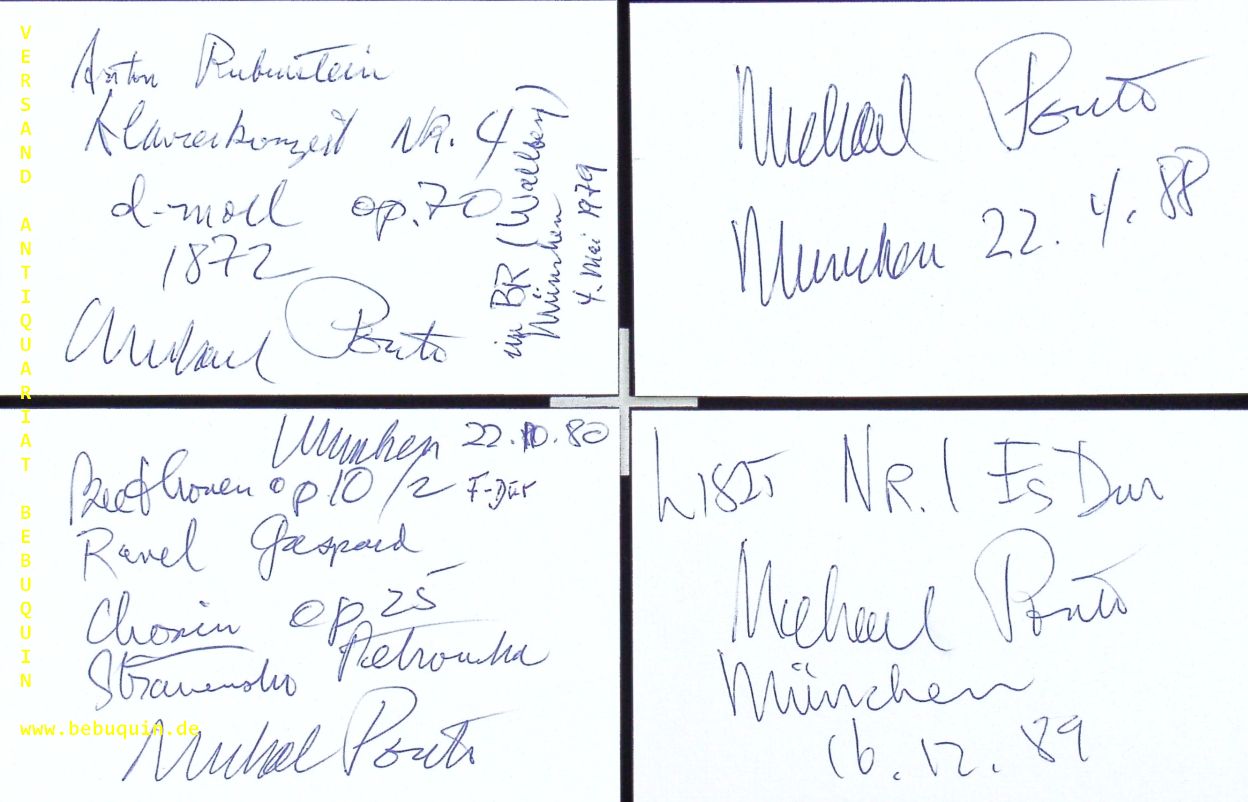 Anton Rubinstein
Klavierkonzert NR. 4
d-moll op. 70
1872
Michael Ponti
im BR (Wallberg)
München
4. Mai 1979
Michael Ponti
München 22. 4. 88
München 22.10.80
Beethoven op 10/2 F-Dur
Ravel Gaspard
Chopin op 25
Stravinsky Petrouchka
Michael Ponti
LISZT NR. 1 Es Dur
Michael Ponti
München
16. 12. 89
VERSAND ANTIQUARIAT BEBUQUIN
www.bebuquin.de